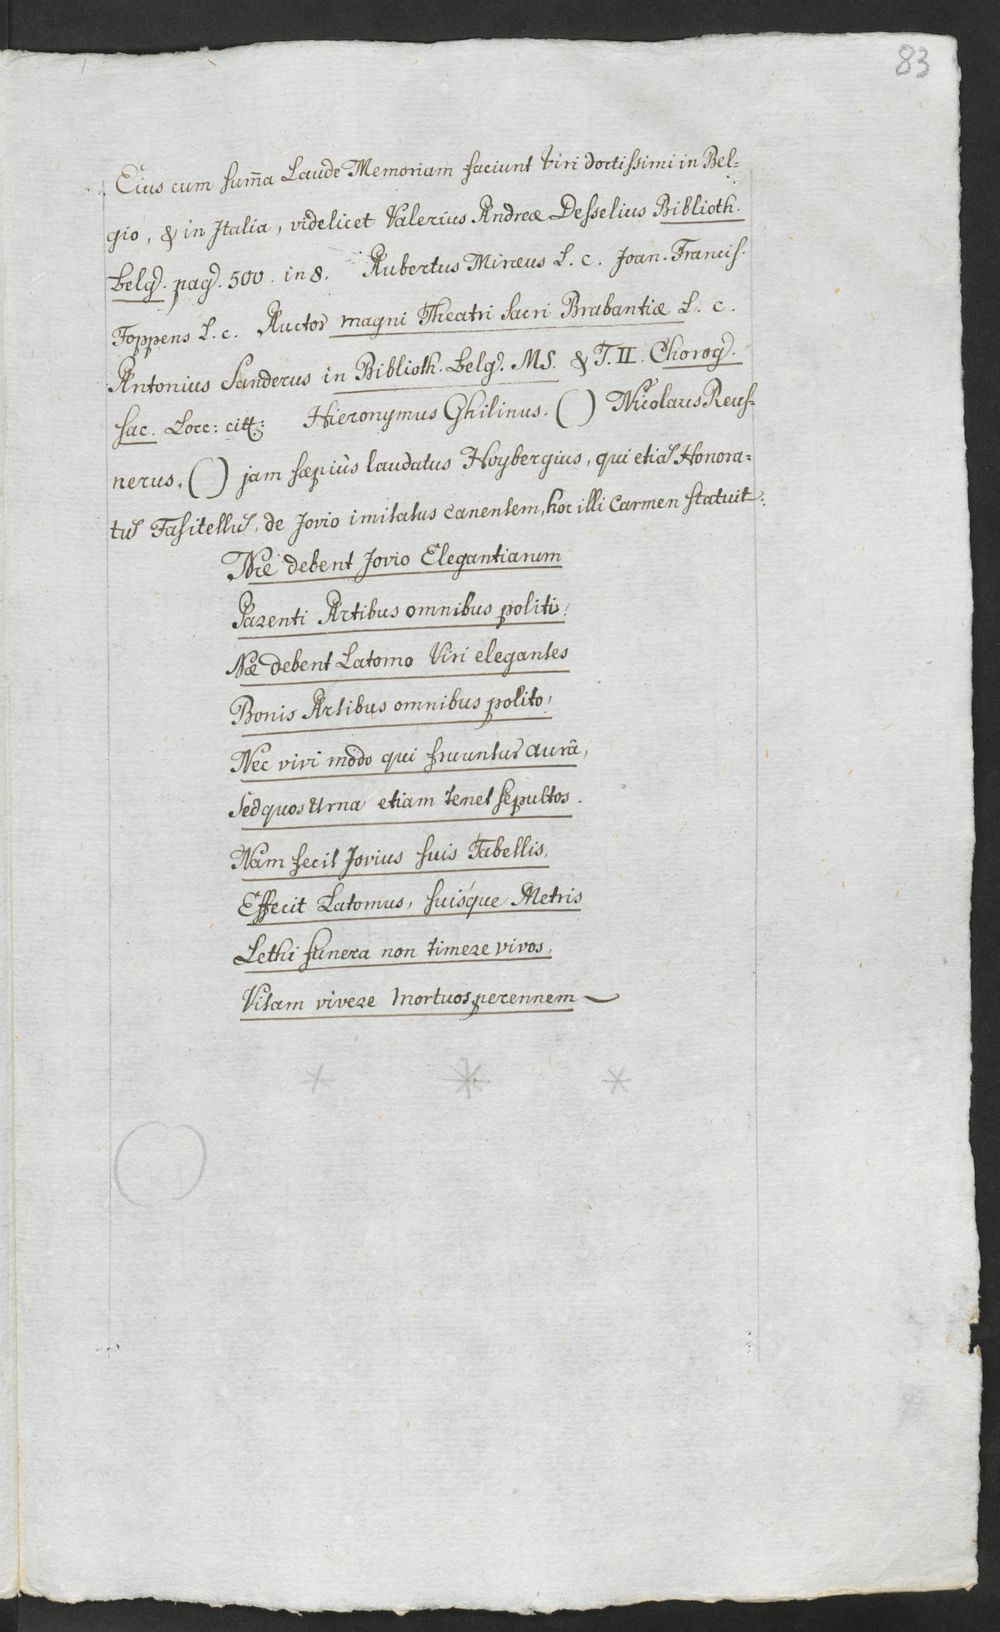 83
Eius cum sum̄a Laude Memoriam faciunt Viri doctissimi in Bel=
gio, & in Italia, videlicet Valerius Andreæ Desselius Biblioth.
Belg. pag. 500. in 8. Aubertus Miræus L. c. Joan. Francis.
Foppens L. c. Auctor magni Theatri Sacri Brabantiæ L. c.
Antonius Sanderus in Biblioth. Belg. MS. & T. II. Chorog.
sac. Locc: citt: Hieronymus Ghilinus. ( ) Nicolaus Reus-
nerus. ( ) jam sæpiùs laudatus Hoybergius, qui etiā Honora=
tus Fasitellus, de Jovio imitatus canentem, hoc illi Carmen statuit:
Næ debent Jovio Elegantiarum
Parenti Artibus omnibus politi!
Næ debent Latomo Viri elegantes
Bonis Artibus omnibus polito!
Nec vivi modo qui fruuntur aurâ,
Sed quos Urna etiam tenet sepultos.
Nam fecit Jovius suis Tabellis,
Effecit Latomus, suisque Metris
Lethi funera non timere vivos,
Vitam vivere mortuos perennem
* * *